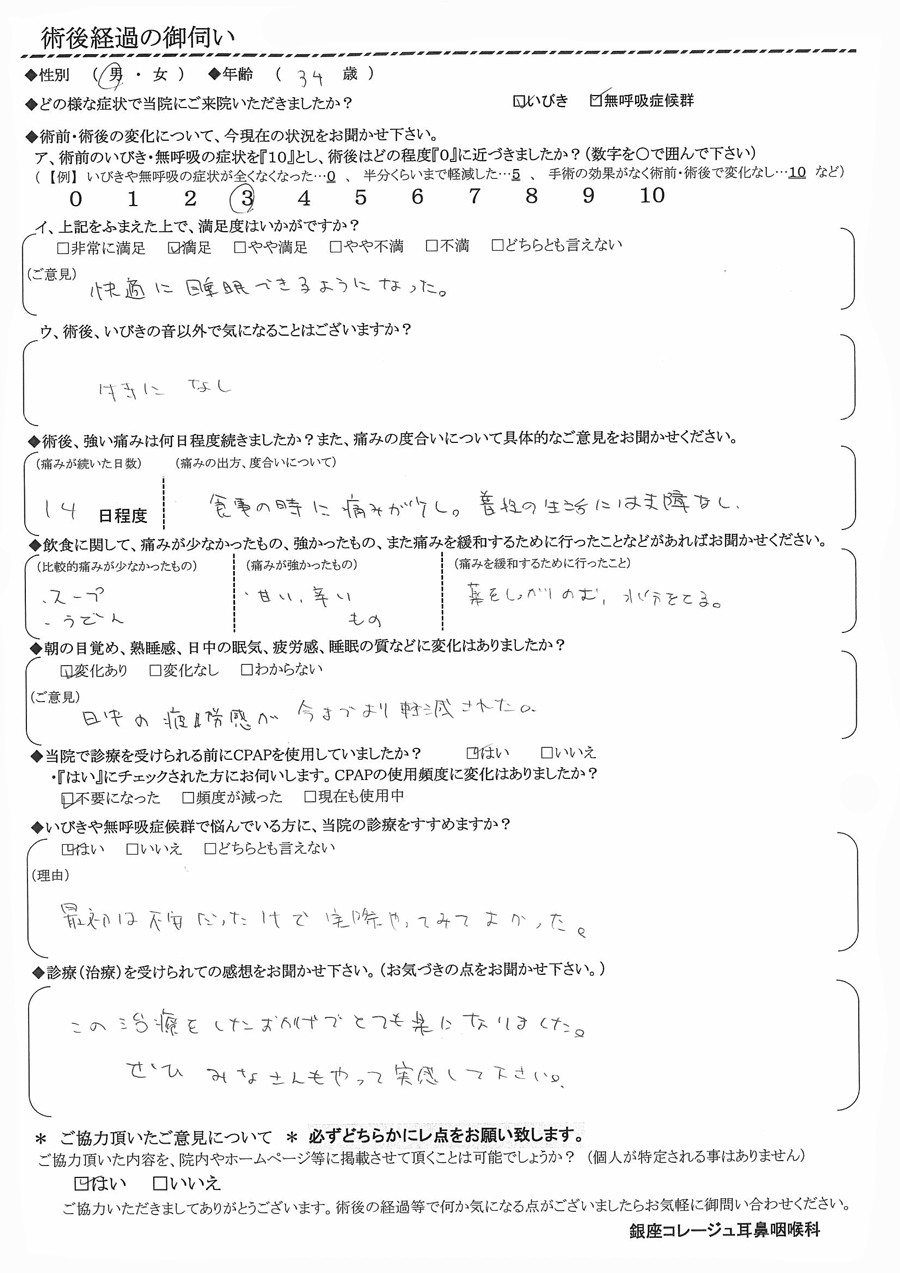 術後経過の御伺い
◆性別 （ 男 ・ 女 ） ◆年齢 （ 34 歳 ）
◆どの様な症状で当院にご来院いただきましたか？ ☑いびき ☑無呼吸症候群
◆術前・術後の変化について、今現在の状況をお聞かせ下さい。
ア、術前のいびき・無呼吸の症状を『10』とし、術後はどの程度『0』に近づきましたか？（数字を○で囲んで下さい）
（【例】 いびきや無呼吸の症状が全くなくなった…0 、 半分くらいまで軽減した…5 、 手術の効果がなく術前・術後で変化なし…10 など）
0 1 2 3 4 5 6 7 8 9 10
イ、上記をふまえた上で、満足度はいかがですか？
□非常に満足 ☑満足 □やや満足 □やや不満 □不満 □どちらとも言えない
（ご意見）
快適に睡眠できるようになった。
ウ、術後、いびきの音以外で気になることはございますか？
特に なし
◆術後、強い痛みは何日程度続きましたか？また、痛みの度合いについて具体的なご意見をお聞かせください。
（痛みが続いた日数） （痛みの出方、度合いについて）
14 日程度 食事の時に痛みが少し。普段の生活には支障なし.
◆飲食に関して、痛みが少なかったもの、強かったもの、また痛みを緩和するために行ったことなどがあればお聞かせください。
（比較的痛みが少なかったもの） （痛みが強かったもの） （痛みを緩和するために行ったこと）
・スープ ・甘い、辛い 薬をしっかりのむ, 水分をとる。
・うどん もの
◆朝の目覚め、熟睡感、日中の眠気、疲労感、睡眠の質などに変化はありましたか？
☑変化あり □変化なし □わからない
（ご意見）
日中の疲労感が 今までより軽減された。
◆当院で診療を受けられる前にCPAPを使用していましたか？ ☑はい □いいえ
・『はい』にチェックされた方にお伺いします。CPAPの使用頻度に変化はありましたか？
☑不要になった □頻度が減った □現在も使用中
◆いびきや無呼吸症候群で悩んでいる方に、当院の診療をすすめますか？
☑はい □いいえ □どちらとも言えない
（理由）
最初は不安だったけど実際やってみてよかった。
◆診療（治療）を受けられての感想をお聞かせ下さい。（お気づきの点をお聞かせ下さい。）
この治療をしたおかげでとても楽になりました。
ぜひ みなさんもやって実感して下さい。
＊ ご協力頂いたご意見について ＊ 必ずどちらかにレ点をお願い致します。
ご協力頂いた内容を、院内やホームページ等に掲載させて頂くことは可能でしょうか？ （個人が特定される事はありません）
☑はい □いいえ
ご協力いただきましてありがとうございます。術後の経過等で何か気になる点がございましたらお気軽に御問い合わせください。
銀座コレージュ耳鼻咽喉科